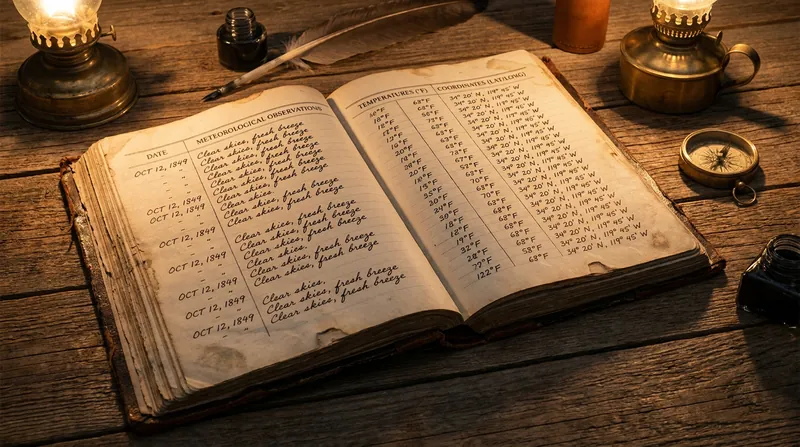 DATE METEOROLOGICAL OBSERVATIONS
Clear skies, fresh breeze
OCT 12, 1849 Clear skies, fresh breeze
Clear skies, fresh breeze
Clear skies, fresh breeze
OCT 12, 1849 Clear skies, fresh breeze
OCT 12, 1849 Clear skies, fresh breeze
Clear skies, fresh breeze
OCT 12, 1849 Clear skies, fresh breeze
Clear skies, fresh breeze
OCT 12, 1849 Clear skies, fresh breeze
Clear skies, fresh breeze
Clear skies, fresh breeze
OCT 12, 1849 Clear skies,
OCT 12, 1849 Clear skies, fresh breeze
OCT 12, 1849 Clear skies, fresh breeze
TEMPERATURES (°F) COORDINATES (LAT/LONG)
63°F 34° 20' N, 119° 45' W
18°F 68°F 34° 20' N, 119° 45' W
18°F 34° 20' N, 119° 45' W
34° 20' N, 119° 45' W
34° 20' N, 119° 45' W
20°F 34° 20' N, 119° 45' W
34° 20' N, 119° 45' W
20°F 34° 20' N, 119° 45' W
18°F 34° 20' N, 119° 45' W
15°F 70°F 34° 20' N, 119° 45' W
20°F 68°F 34° 20' N, 119° 45' W
24°F 70°F 34° 20' N, 119° 45' W
30°F 68°F 34° 20' N, 119° 45' W
18°F 68°F 34° 20' N, 119° 45' W
18°F 68°F 34° 20' N, 119° 45' W
19°F 68°F 34° 20' N, 119° 45' W
32°F 68°F 34° 20' N, 119° 45' W
28°F 58°F 34° 20' N, 119° 45' W
72°F 68°F 34° 20' N, 119° 45' W
122°F